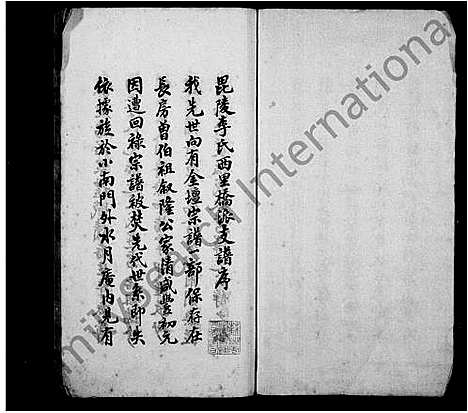 毘陵李氏西里橋派支譜序
我先世向有金壇宗譜一部保存在
長房曾伯祖叙隆公家清咸豐初元
因遭回祿宗譜被焚先代世系即失
依據族於小南門外水月廣內見有
milySearch International